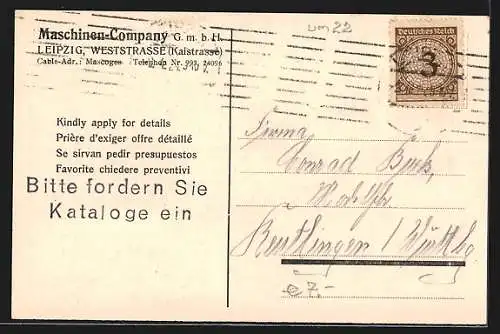 um 22
Maschinen-Company G. m. b. H.
LEIPZIG, WESTSTRASSE (Kaistrasse)
Cable-Adr.: Mascogen Telephon Nr. 993, 24096
Deutsches Reich
3
Kindly apply for details
Prière d'exiger offre détaillé
Se sirvan pedir presupuestos
Favorite chiedere preventivi
Bitte fordern Sie
Kataloge ein
Firma
Conrad
Reutlingen / Württbg
e 7.-